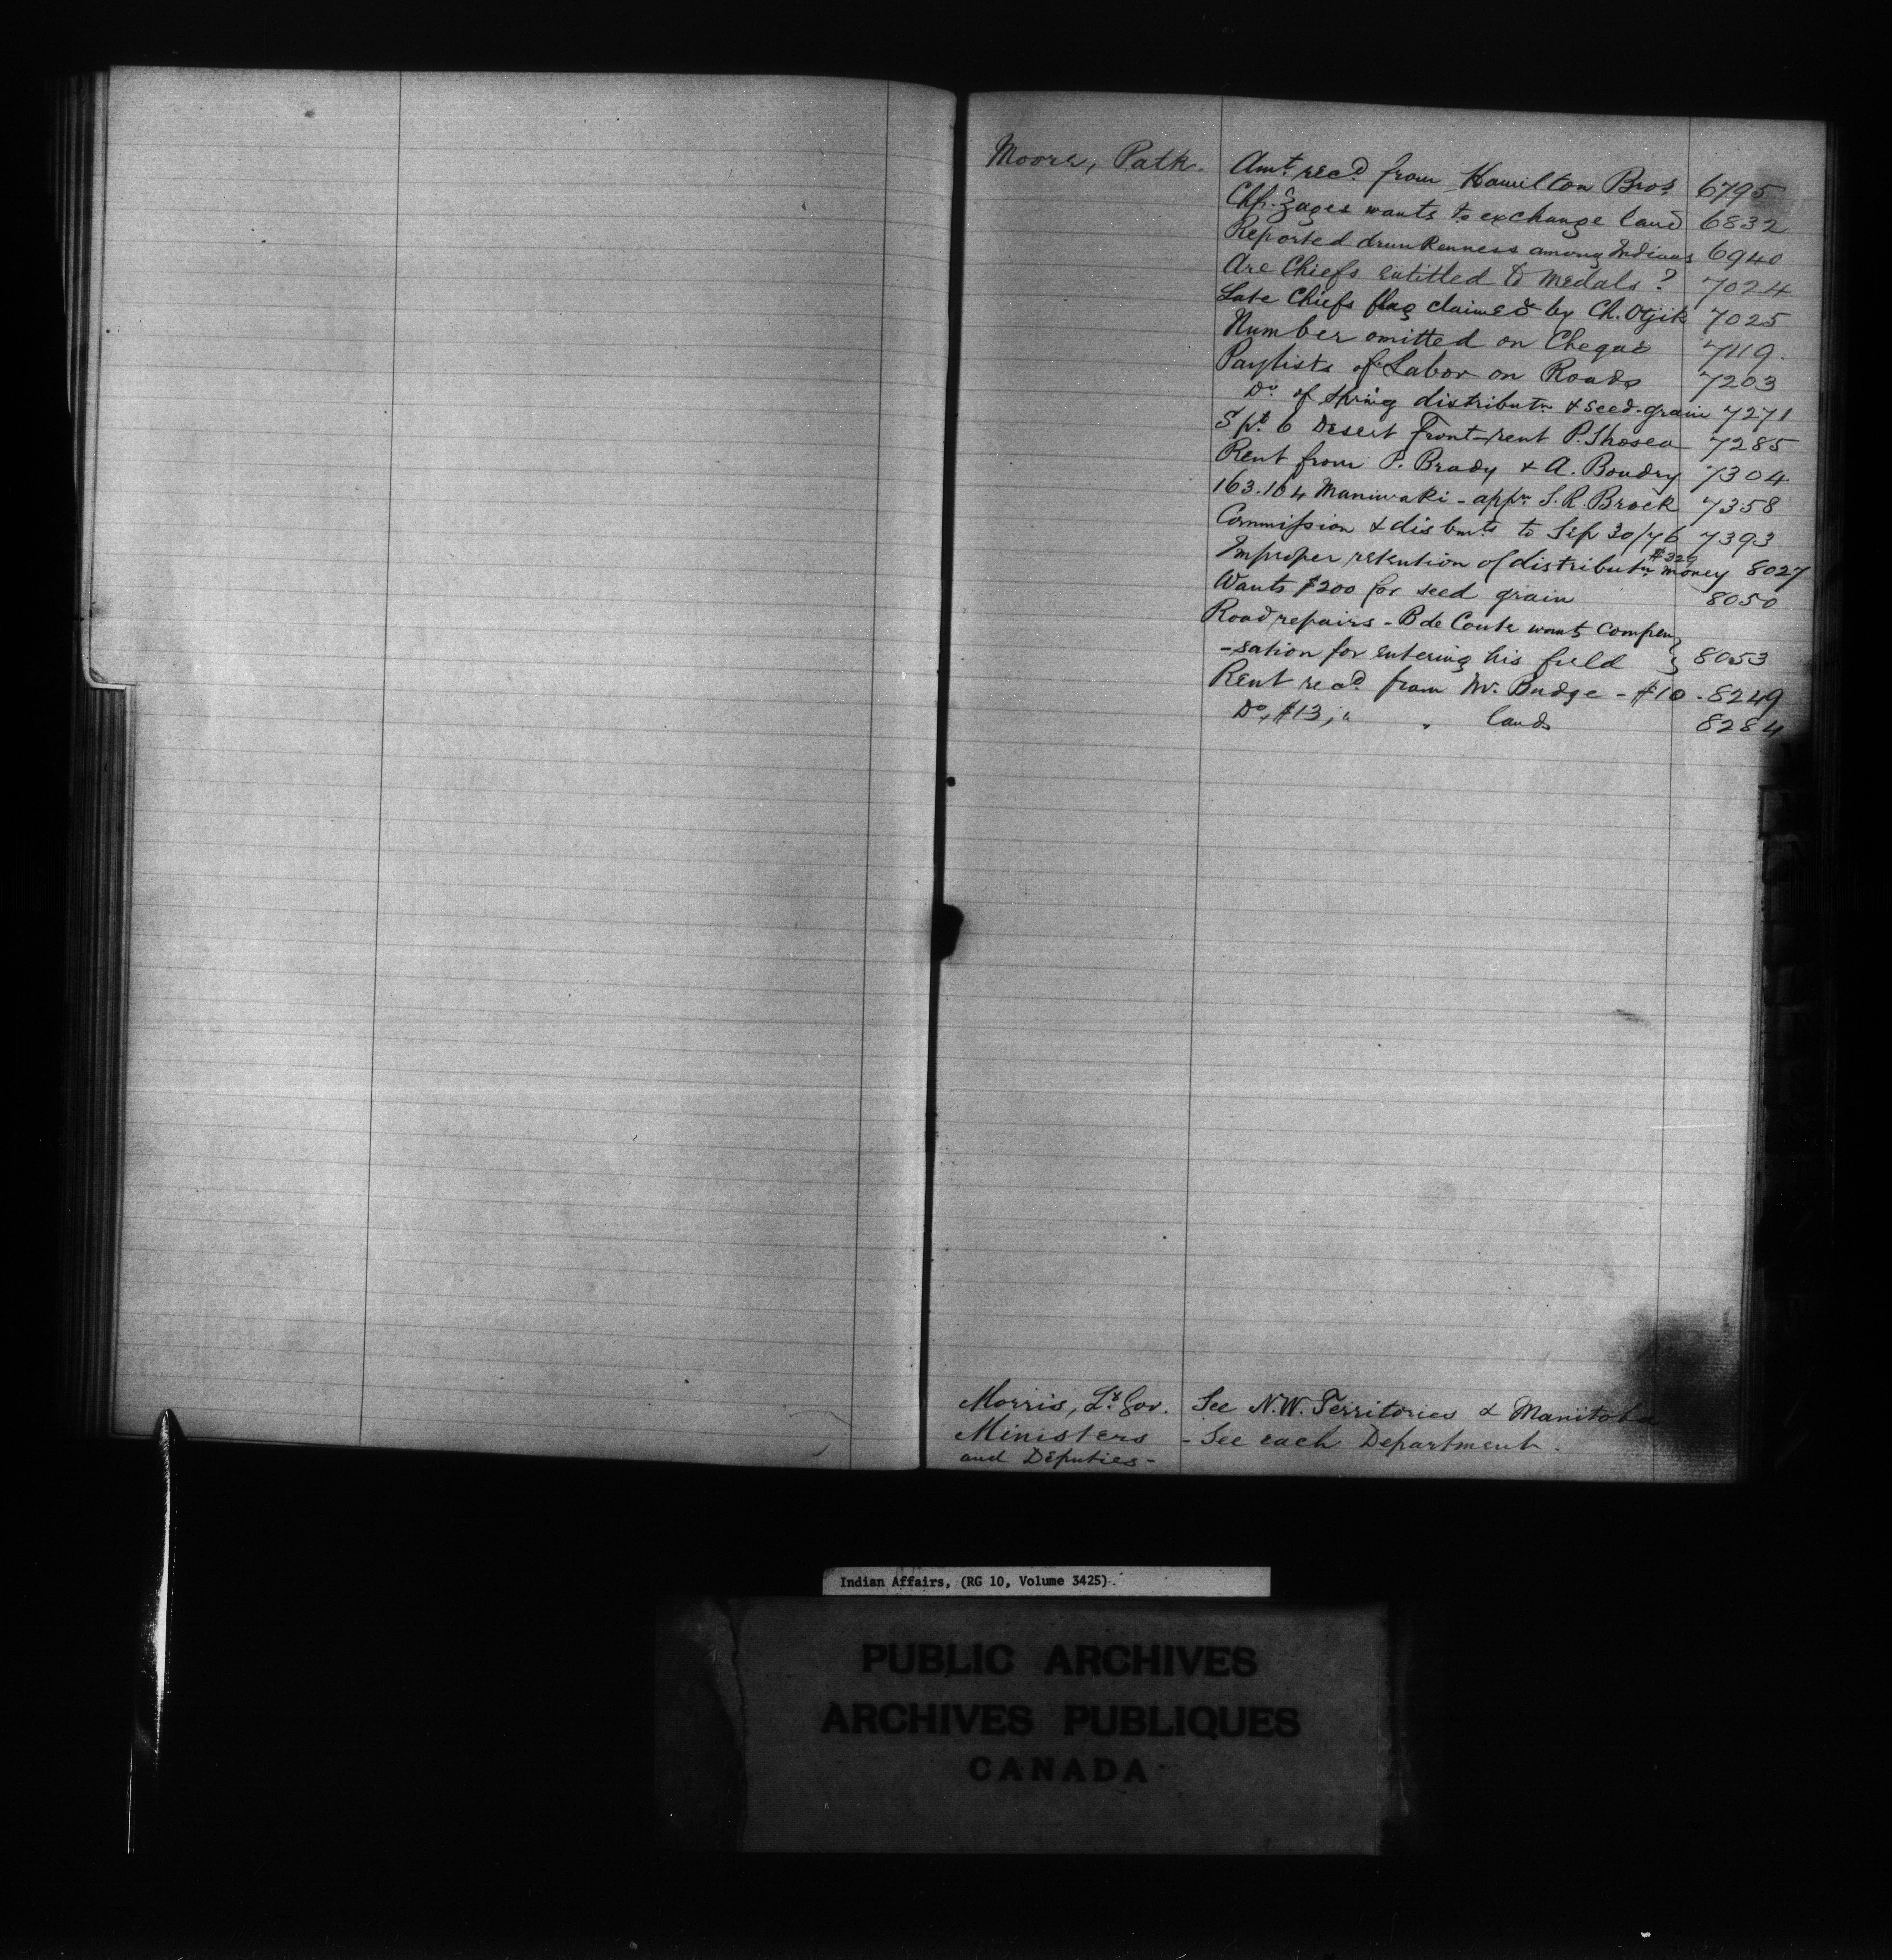 Moore, Patk. Amt. recd. from Hamilton Bros. 6795
wants to exchange land 6832
Reported drunkenness among Indians 6940
Are Chiefs entitled to medals? 7024
Late Chiefs flag claimed by Ch. Otjik 7025
Number omitted on Cheque 7119.
Paylists of Labor on Roads 7203
Do. of Spring distributn & seed-grain 7271
6 Desert Front-rent P. 7285
Rent from P. Brady & A. Boudry 7304
163.164 Maniwaki - appn S.R. Brock 7358
Commission & disbmts to Sep 30/76 7393
Improper retention of distributn $329 money 8027
Wants $200 for seed grain 8050
Road repairs - B de Coute wants compen
-sation for entering his field } 8053
Rent recd. from W. Budge - $10 - 8249
Do, $13, " " lands 8284
Morris, Lt. Gov. See N.W. Territories & Manitoba
Ministers - See each Department.
and Deputies -
Indian Affairs, (RG 10, Volume 3425)
PUBLIC ARCHIVES
ARCHIVES PUBLIQUES
CANADA